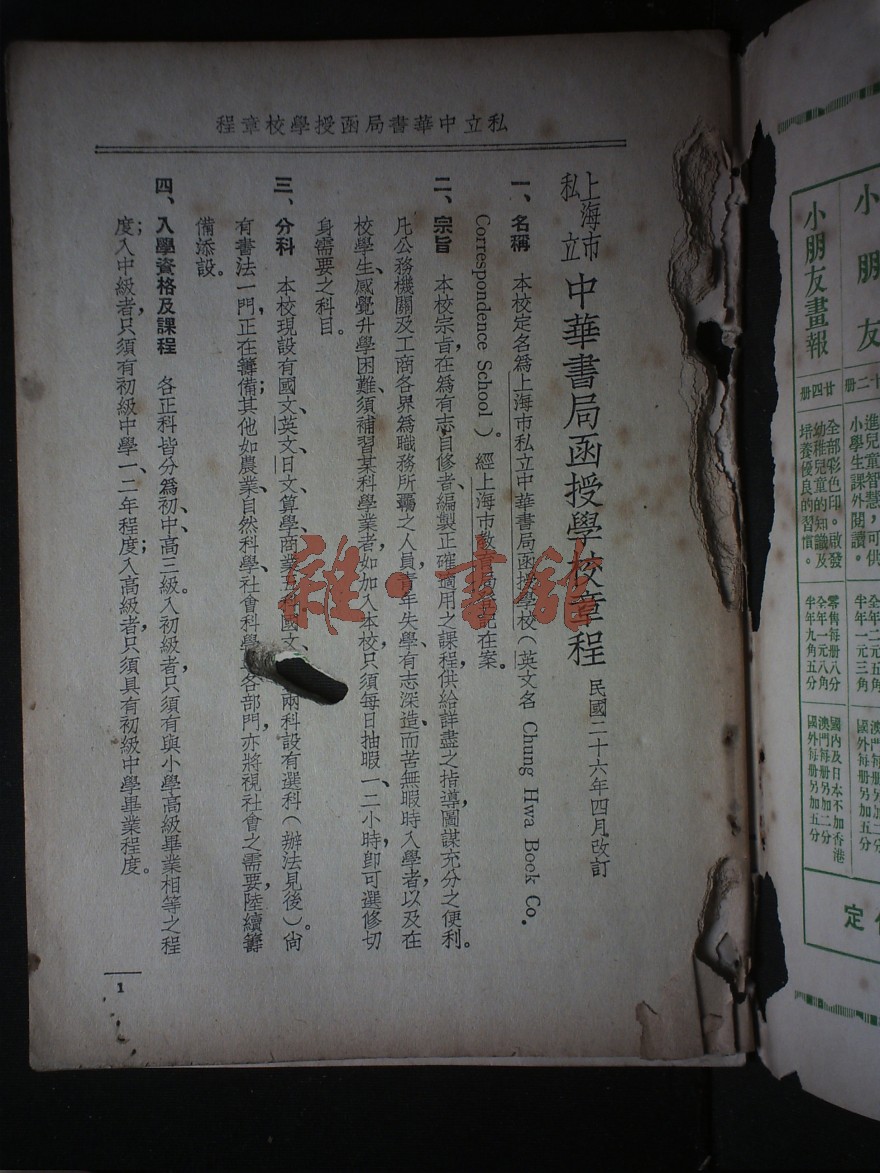 私立中華書局函授學校章程
上海市私立中華書局函授學校章程 民國二十六年四月改訂
一、名稱 本校定名爲上海市私立中華書局函授學校(英文名 Chung Hwa Book Co.
Correspondence School)。經上海市教育局登記在案。
二、宗旨 本校宗旨在爲有志自修者、編製正確適用之課程供給詳盡之指導圖謀充分之便利。
凡公務機關及工商各界爲職務所羈之人員青年失學、有志深造而苦無暇時入學者以及在
校學生、感覺升學困難、須補習某科學業者、如加入本校只須每日抽暇一、二小時、即可選修切
身需要之科目。
三、分科 本校現設有國文、英文、日文、算學、商業五科國文、兩科設有選科(辦法見後)。尙
有書法一門、正在籌備;其他如農業、自然科學、社會科學各部門、亦將視社會之需要、陸續籌
備添設。
四、入學資格及課程 各正科皆分爲初、中、高三級。入初級者只須有與小學高級畢業相等之程
度;入中級者只須有初級中學一、二年程度;入高級者、只須具有初級中學畢業程度。
1
小朋友
十二册
進兒童智慧,可供
小學生課外閱讀。
全年二元五角
半年一元三角
國外每册另加五分
小朋友畫報
廿四册
全部彩色印。啟發
幼稚兒童的知識及
培養優良的習慣。
零售每册八分
全年一元八角
半年九角五分
國內及日本不加香港
澳門每册另加二分
國外每册另加五分
定
雜·書館